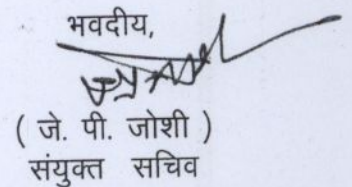 भवदीय,
( जे. पी. जोशी )
संयुक्त सचिव